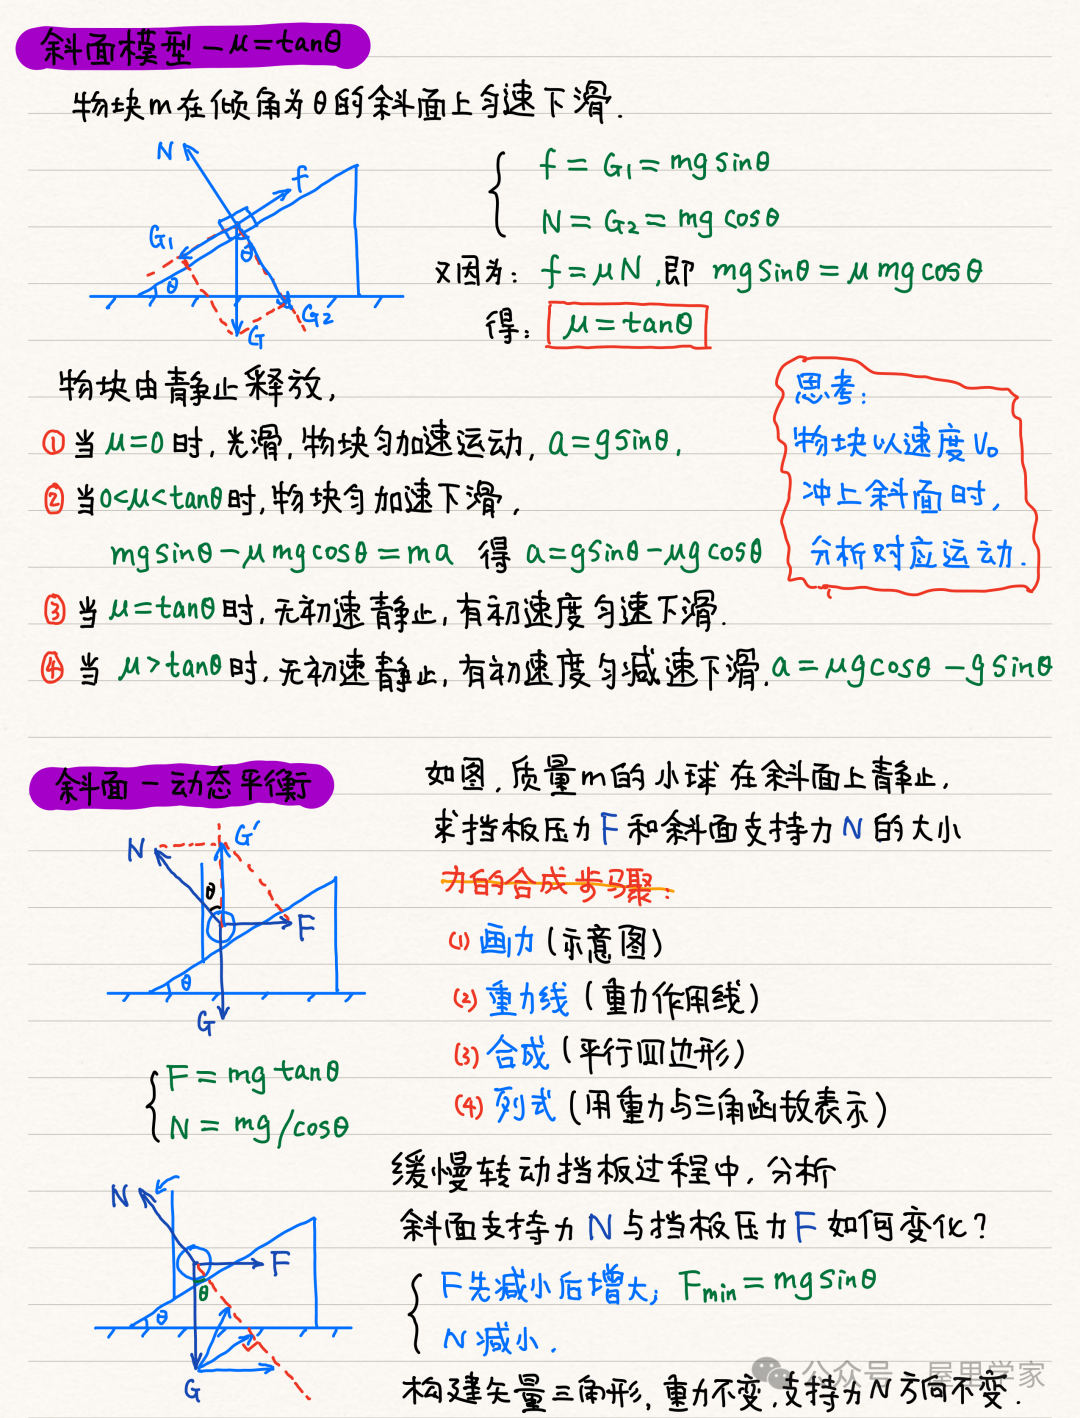 斜面模型-μ=tanθ
物块m在倾角为θ的斜面上匀速下滑.
N
f
G1
θ
θ
G2
G
f=G1=mgsinθ
N=G2=mgcosθ
又因为:f=μN,即 mgsinθ=μmgcosθ
得: μ=tanθ
物块由静止释放,
①当μ=0时,光滑,物块匀加速运动,a=gsinθ,
②当0<μ<tanθ时,物块匀加速下滑,
mgsinθ-μmgcosθ=ma 得 a=gsinθ-μgcosθ
③当μ=tanθ时,无初速静止,有初速度匀速下滑.
④当 μ>tanθ时,无初速静止,有初速度匀减速下滑.a=μgcosθ-gsinθ
思考:
物块以速度V0
冲上斜面时,
分析对应运动.
斜面-动态平衡
如图,质量m的小球在斜面上静止,
求挡板压力F和斜面支持力N的大小
力的合成步骤:
(1)画力(示意图)
(2)重力线(重力作用线)
(3)合成(平行四边形)
(4)列式(用重力与三角函数表示)
N
G′
θ
F
θ
G
F=mgtanθ
N=mg/cosθ
缓慢转动挡板过程中,分析
斜面支持力N与挡板压力F如何变化?
F先减小后增大; Fmin=mgsinθ
N减小.
构建矢量三角形,重力不变,支持力N方向不变.
N
F
θ
θ
G
公众号·屋里学家